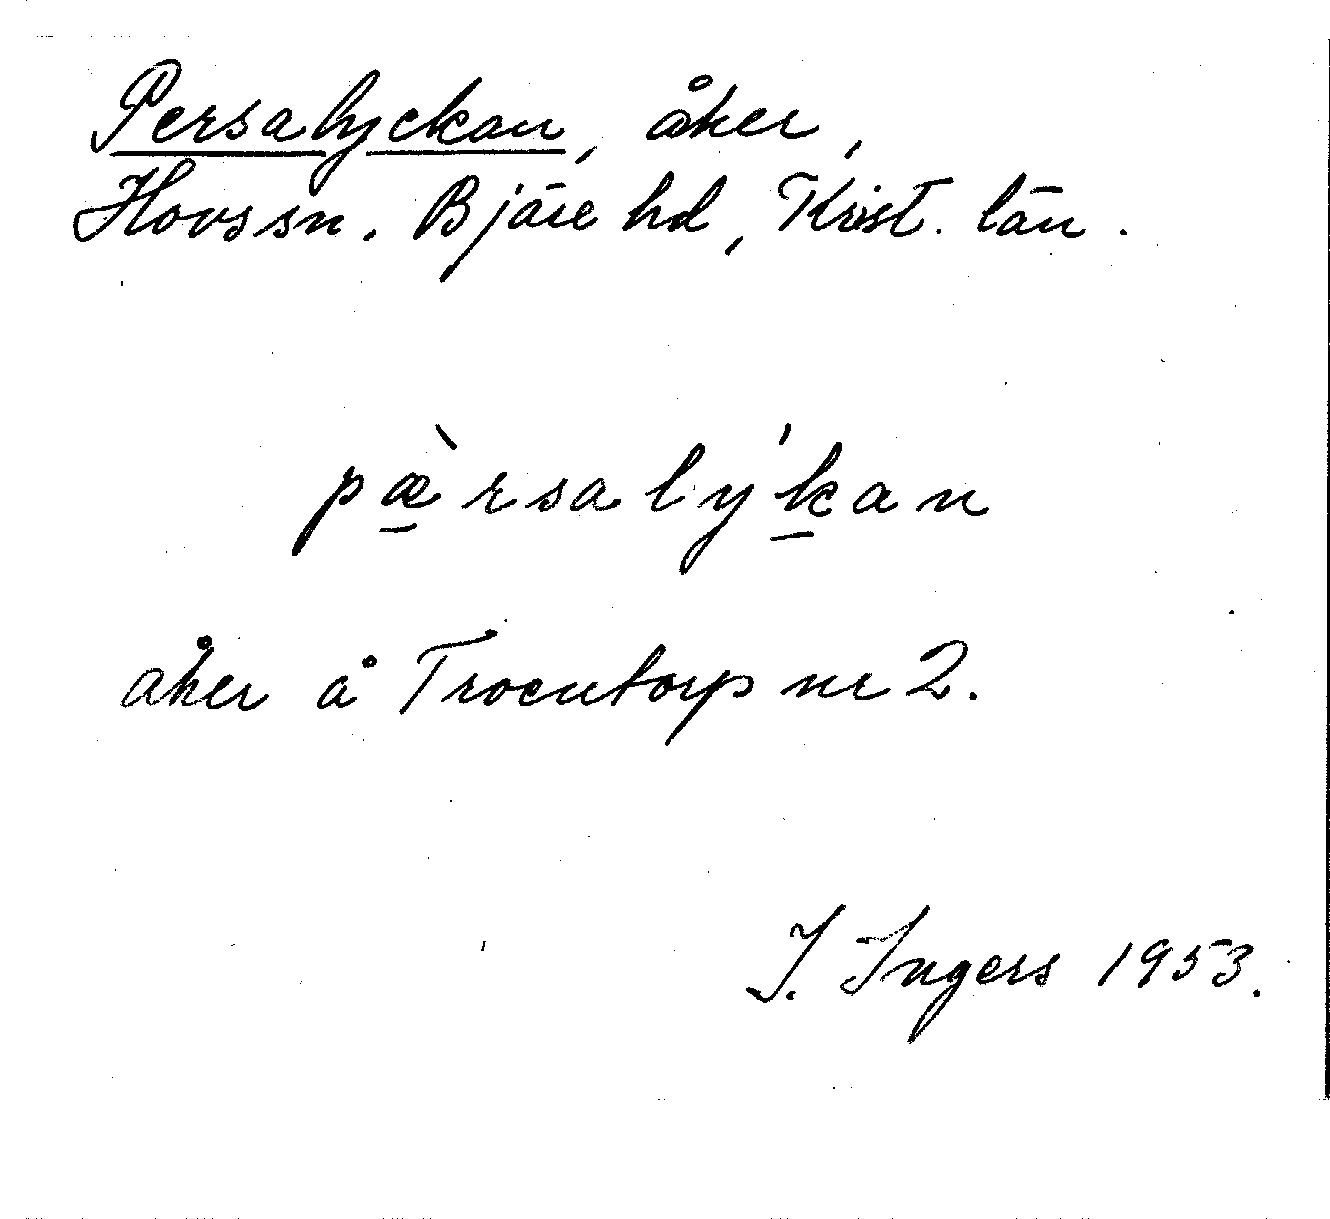 Persalyckan, åker,
Hovs sn. Bjäre hd, Krist. län.
pæ̀rsalýkan
åker å Troentorp nr 2.
I. Ingers 1953.